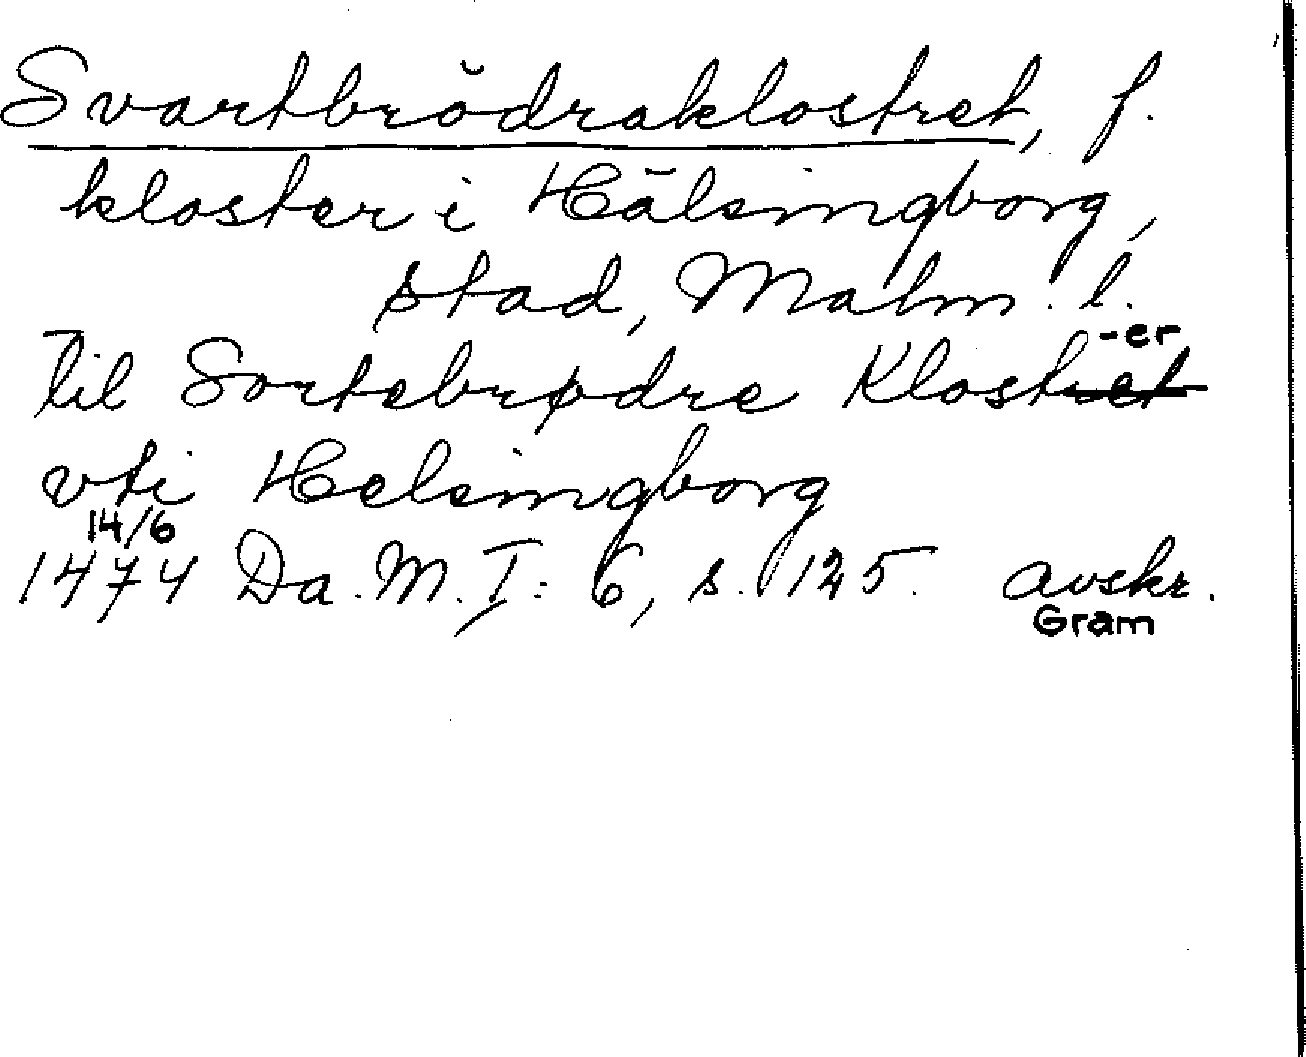 Svartbrödraklostret, f.
kloster i Hälsingborg,
stad, Malm. l.
-er
Til Sortebrødre Klostret
vti Helsingborg
14/6
1474 Da. M. I: 6, s. 125. avskr.
Gram